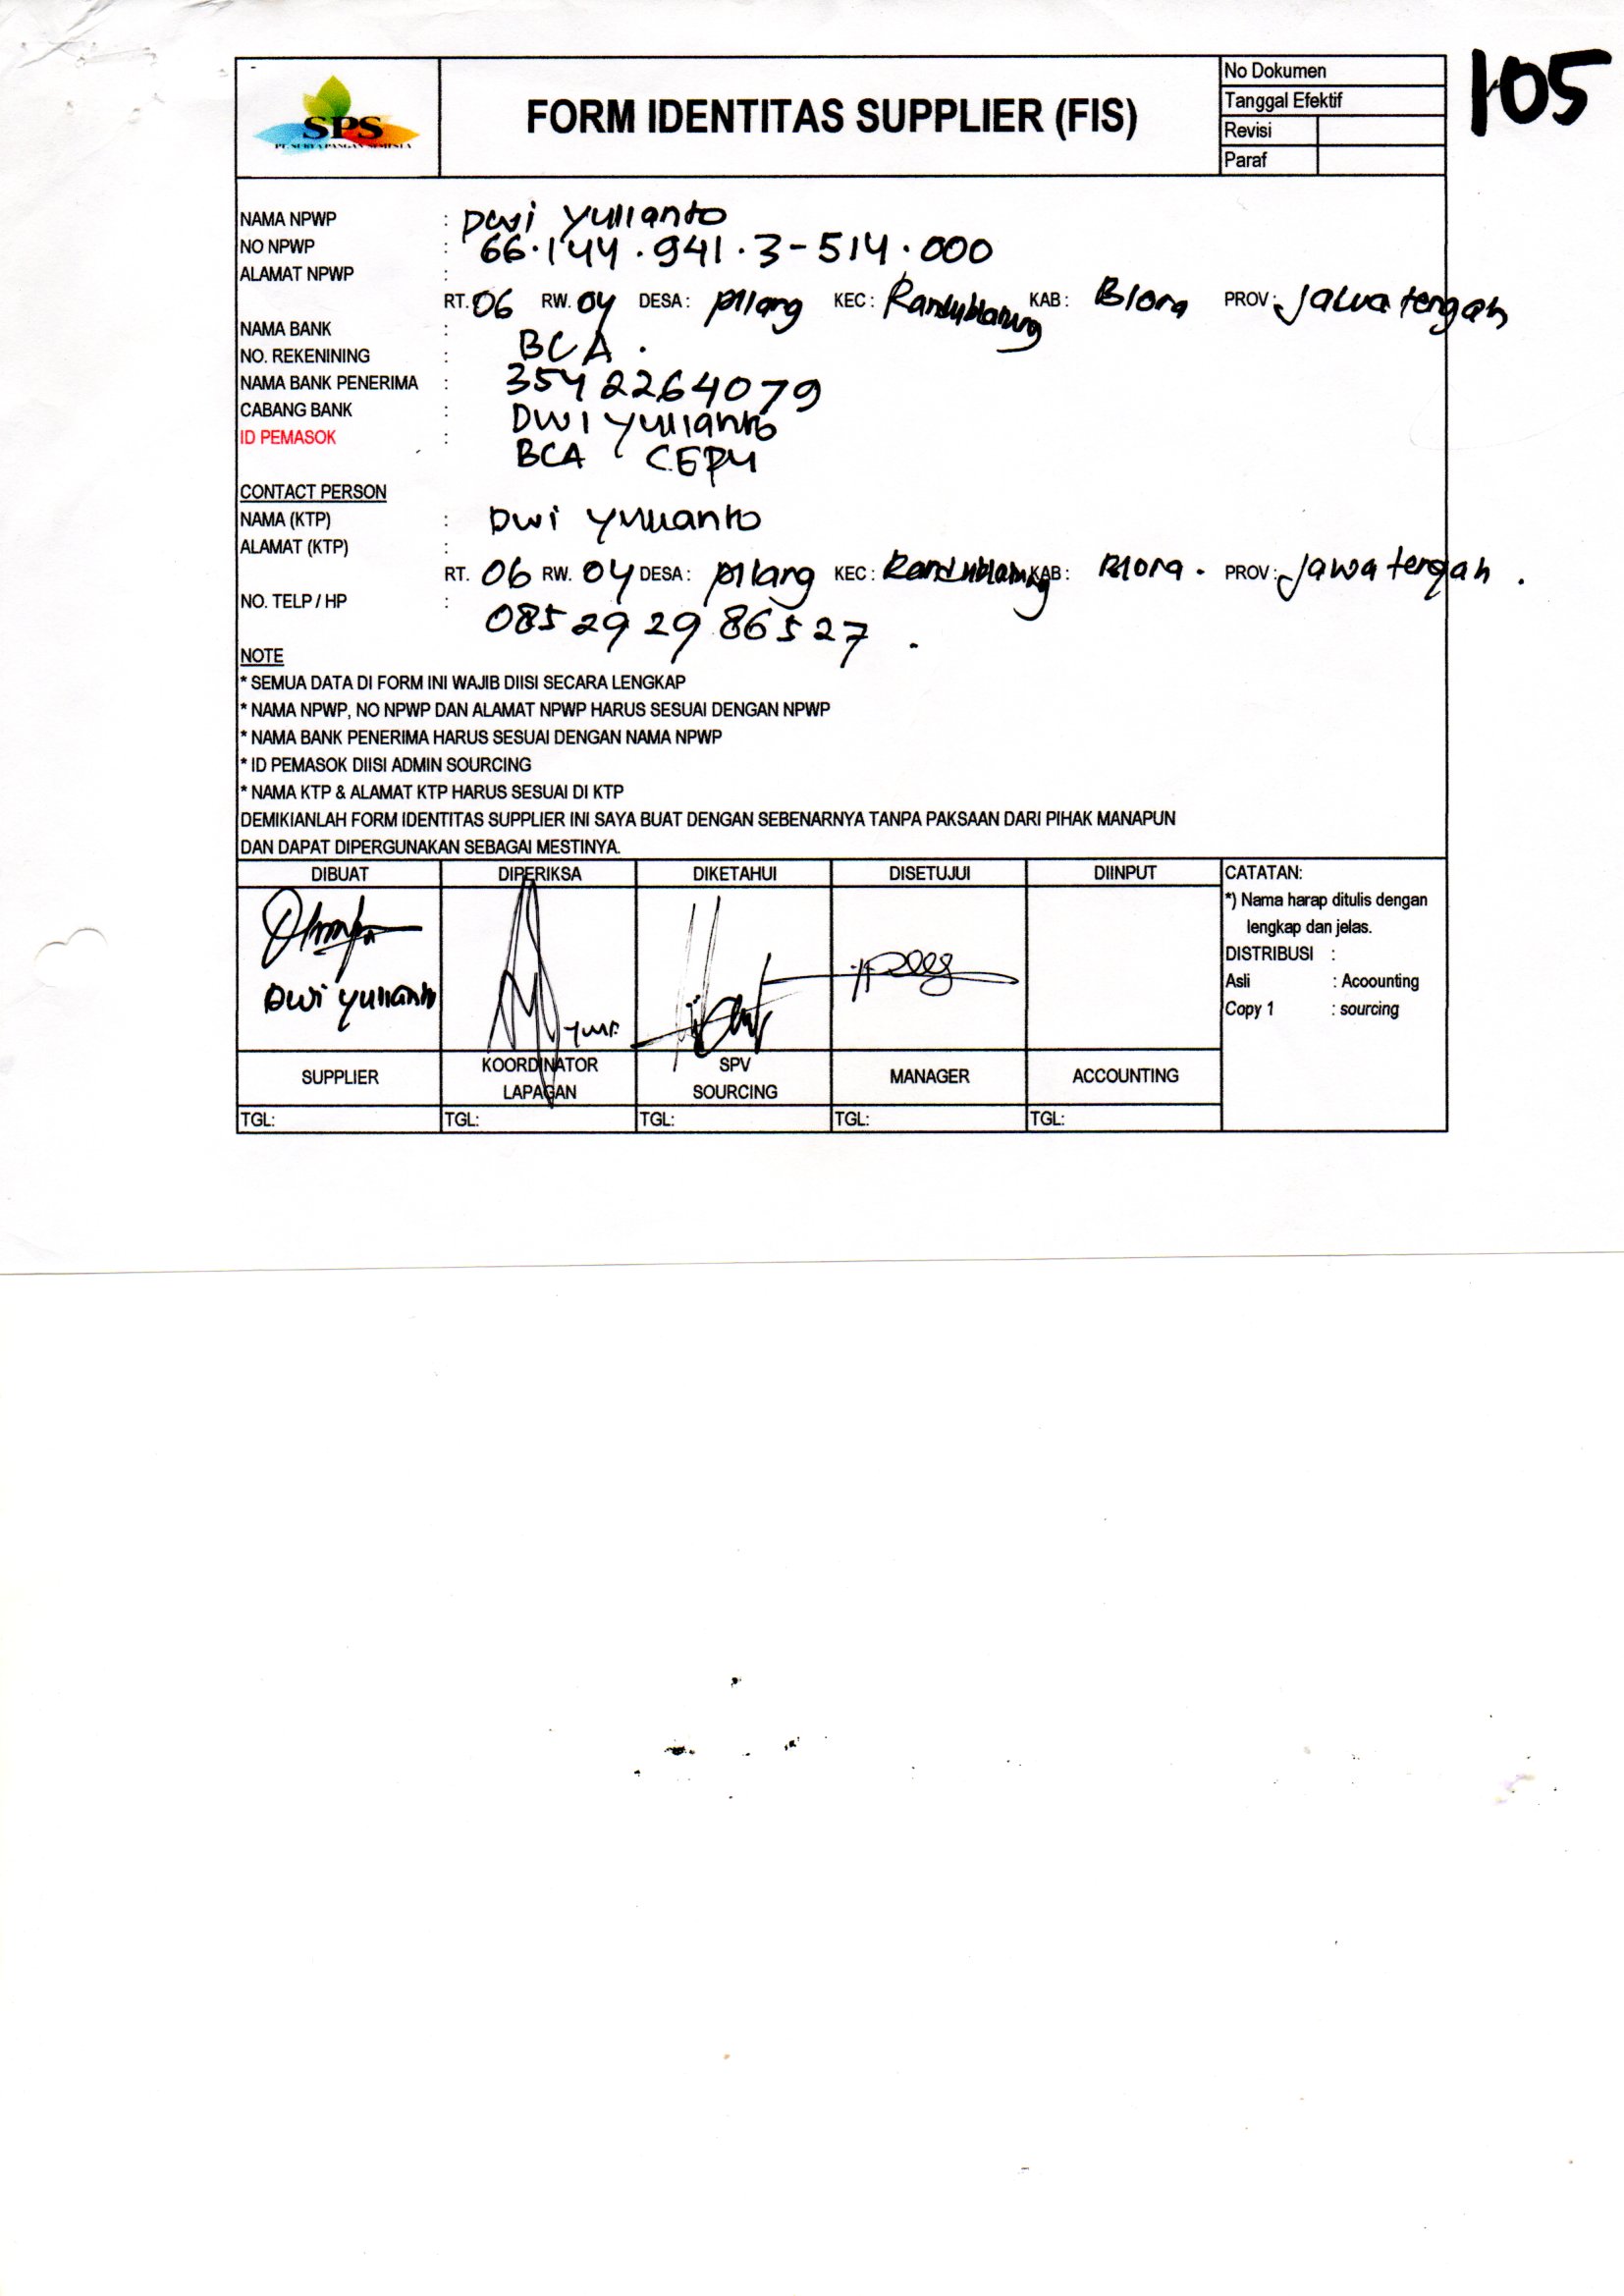 105
SPS
PT. SURYA PANGAN SEMESTA
FORM IDENTITAS SUPPLIER (FIS)
No Dokumen
Tanggal Efektif
Revisi
Paraf
NAMA NPWP : Dwi Yulianto
NO NPWP : 66.144.941.3-514.000
ALAMAT NPWP :
RT. 06 RW. 04 DESA : Pilang KEC : Randublatung KAB : Blora PROV : Jawa tengah
NAMA BANK : BCA .
NO. REKENINING : 35422264079
NAMA BANK PENERIMA : Dwi Yulianto
CABANG BANK : BCA CEPU
ID PEMASOK :
CONTACT PERSON
NAMA (KTP) : Dwi Yulianto
ALAMAT (KTP) :
RT. 06 RW. 04 DESA : Pilang KEC : Randublatung KAB : Blora . PROV : Jawa tengah .
NO. TELP / HP : 085292986527 .
NOTE
* SEMUA DATA DI FORM INI WAJIB DIISI SECARA LENGKAP
* NAMA NPWP, NO NPWP DAN ALAMAT NPWP HARUS SESUAI DENGAN NPWP
* NAMA BANK PENERIMA HARUS SESUAI DENGAN NAMA NPWP
* ID PEMASOK DIISI ADMIN SOURCING
* NAMA KTP & ALAMAT KTP HARUS SESUAI DI KTP
DEMIKIANLAH FORM IDENTITAS SUPPLIER INI SAYA BUAT DENGAN SEBENARNYA TANPA PAKSAAN DARI PIHAK MANAPUN
DAN DAPAT DIPERGUNAKAN SEBAGAI MESTINYA.
DIBUAT DIPERIKSA DIKETAHUI DISETUJUI DIINPUT CATATAN:
*) Nama harap ditulis dengan
lengkap dan jelas.
DISTRIBUSI :
Asli : Acoounting
Copy 1 : sourcing
Dwi Yulianto
SUPPLIER KOORDINATOR LAPAGAN SPV SOURCING MANAGER ACCOUNTING
TGL: TGL: TGL: TGL: TGL: